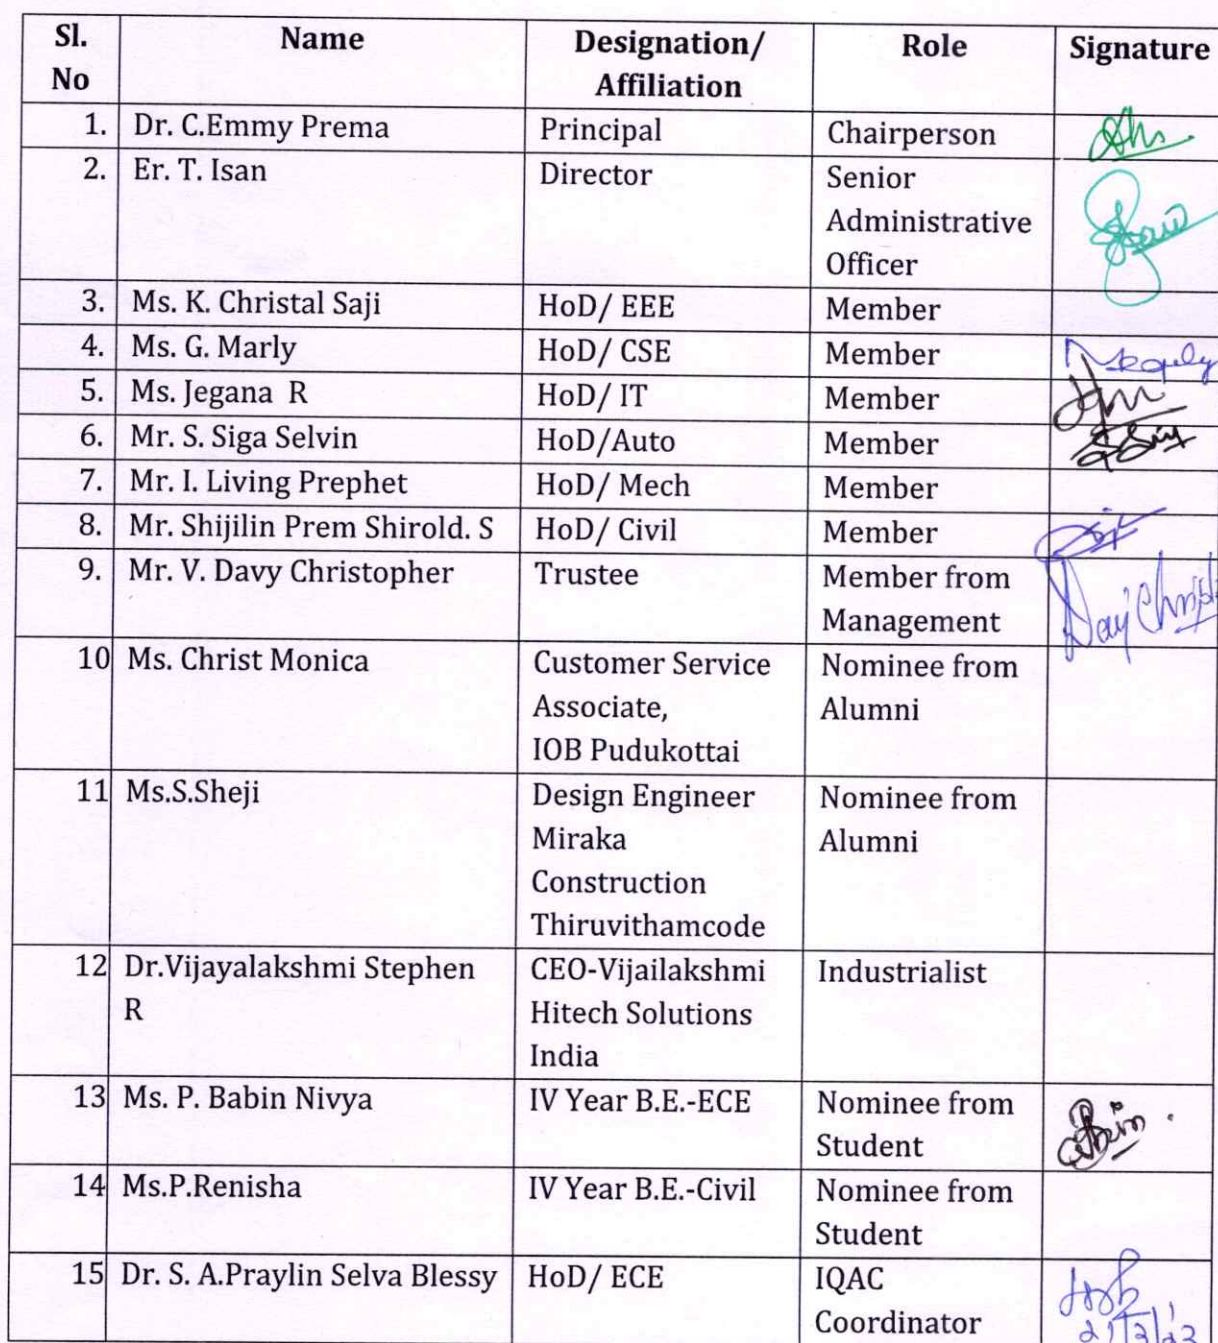 Sl. No Name Designation/ Affiliation Role Signature
1. Dr. C.Emmy Prema Principal Chairperson
2. Er. T. Isan Director Senior Administrative Officer
3. Ms. K. Christal Saji HoD/ EEE Member
4. Ms. G. Marly HoD/ CSE Member
5. Ms. Jegana R HoD/ IT Member
6. Mr. S. Siga Selvin HoD/Auto Member
7. Mr. I. Living Prephet HoD/ Mech Member
8. Mr. Shijilin Prem Shirold. S HoD/ Civil Member
9. Mr. V. Davy Christopher Trustee Member from Management
10 Ms. Christ Monica Customer Service Associate, IOB Pudukottai Nominee from Alumni
11 Ms.S.Sheji Design Engineer Miraka Construction Thiruvithamcode Nominee from Alumni
12 Dr.Vijayalakshmi Stephen R CEO-Vijailakshmi Hitech Solutions India Industrialist
13 Ms. P. Babin Nivya IV Year B.E.-ECE Nominee from Student
14 Ms.P.Renisha IV Year B.E.-Civil Nominee from Student
15 Dr. S. A.Praylin Selva Blessy HoD/ ECE IQAC Coordinator
21/3/23